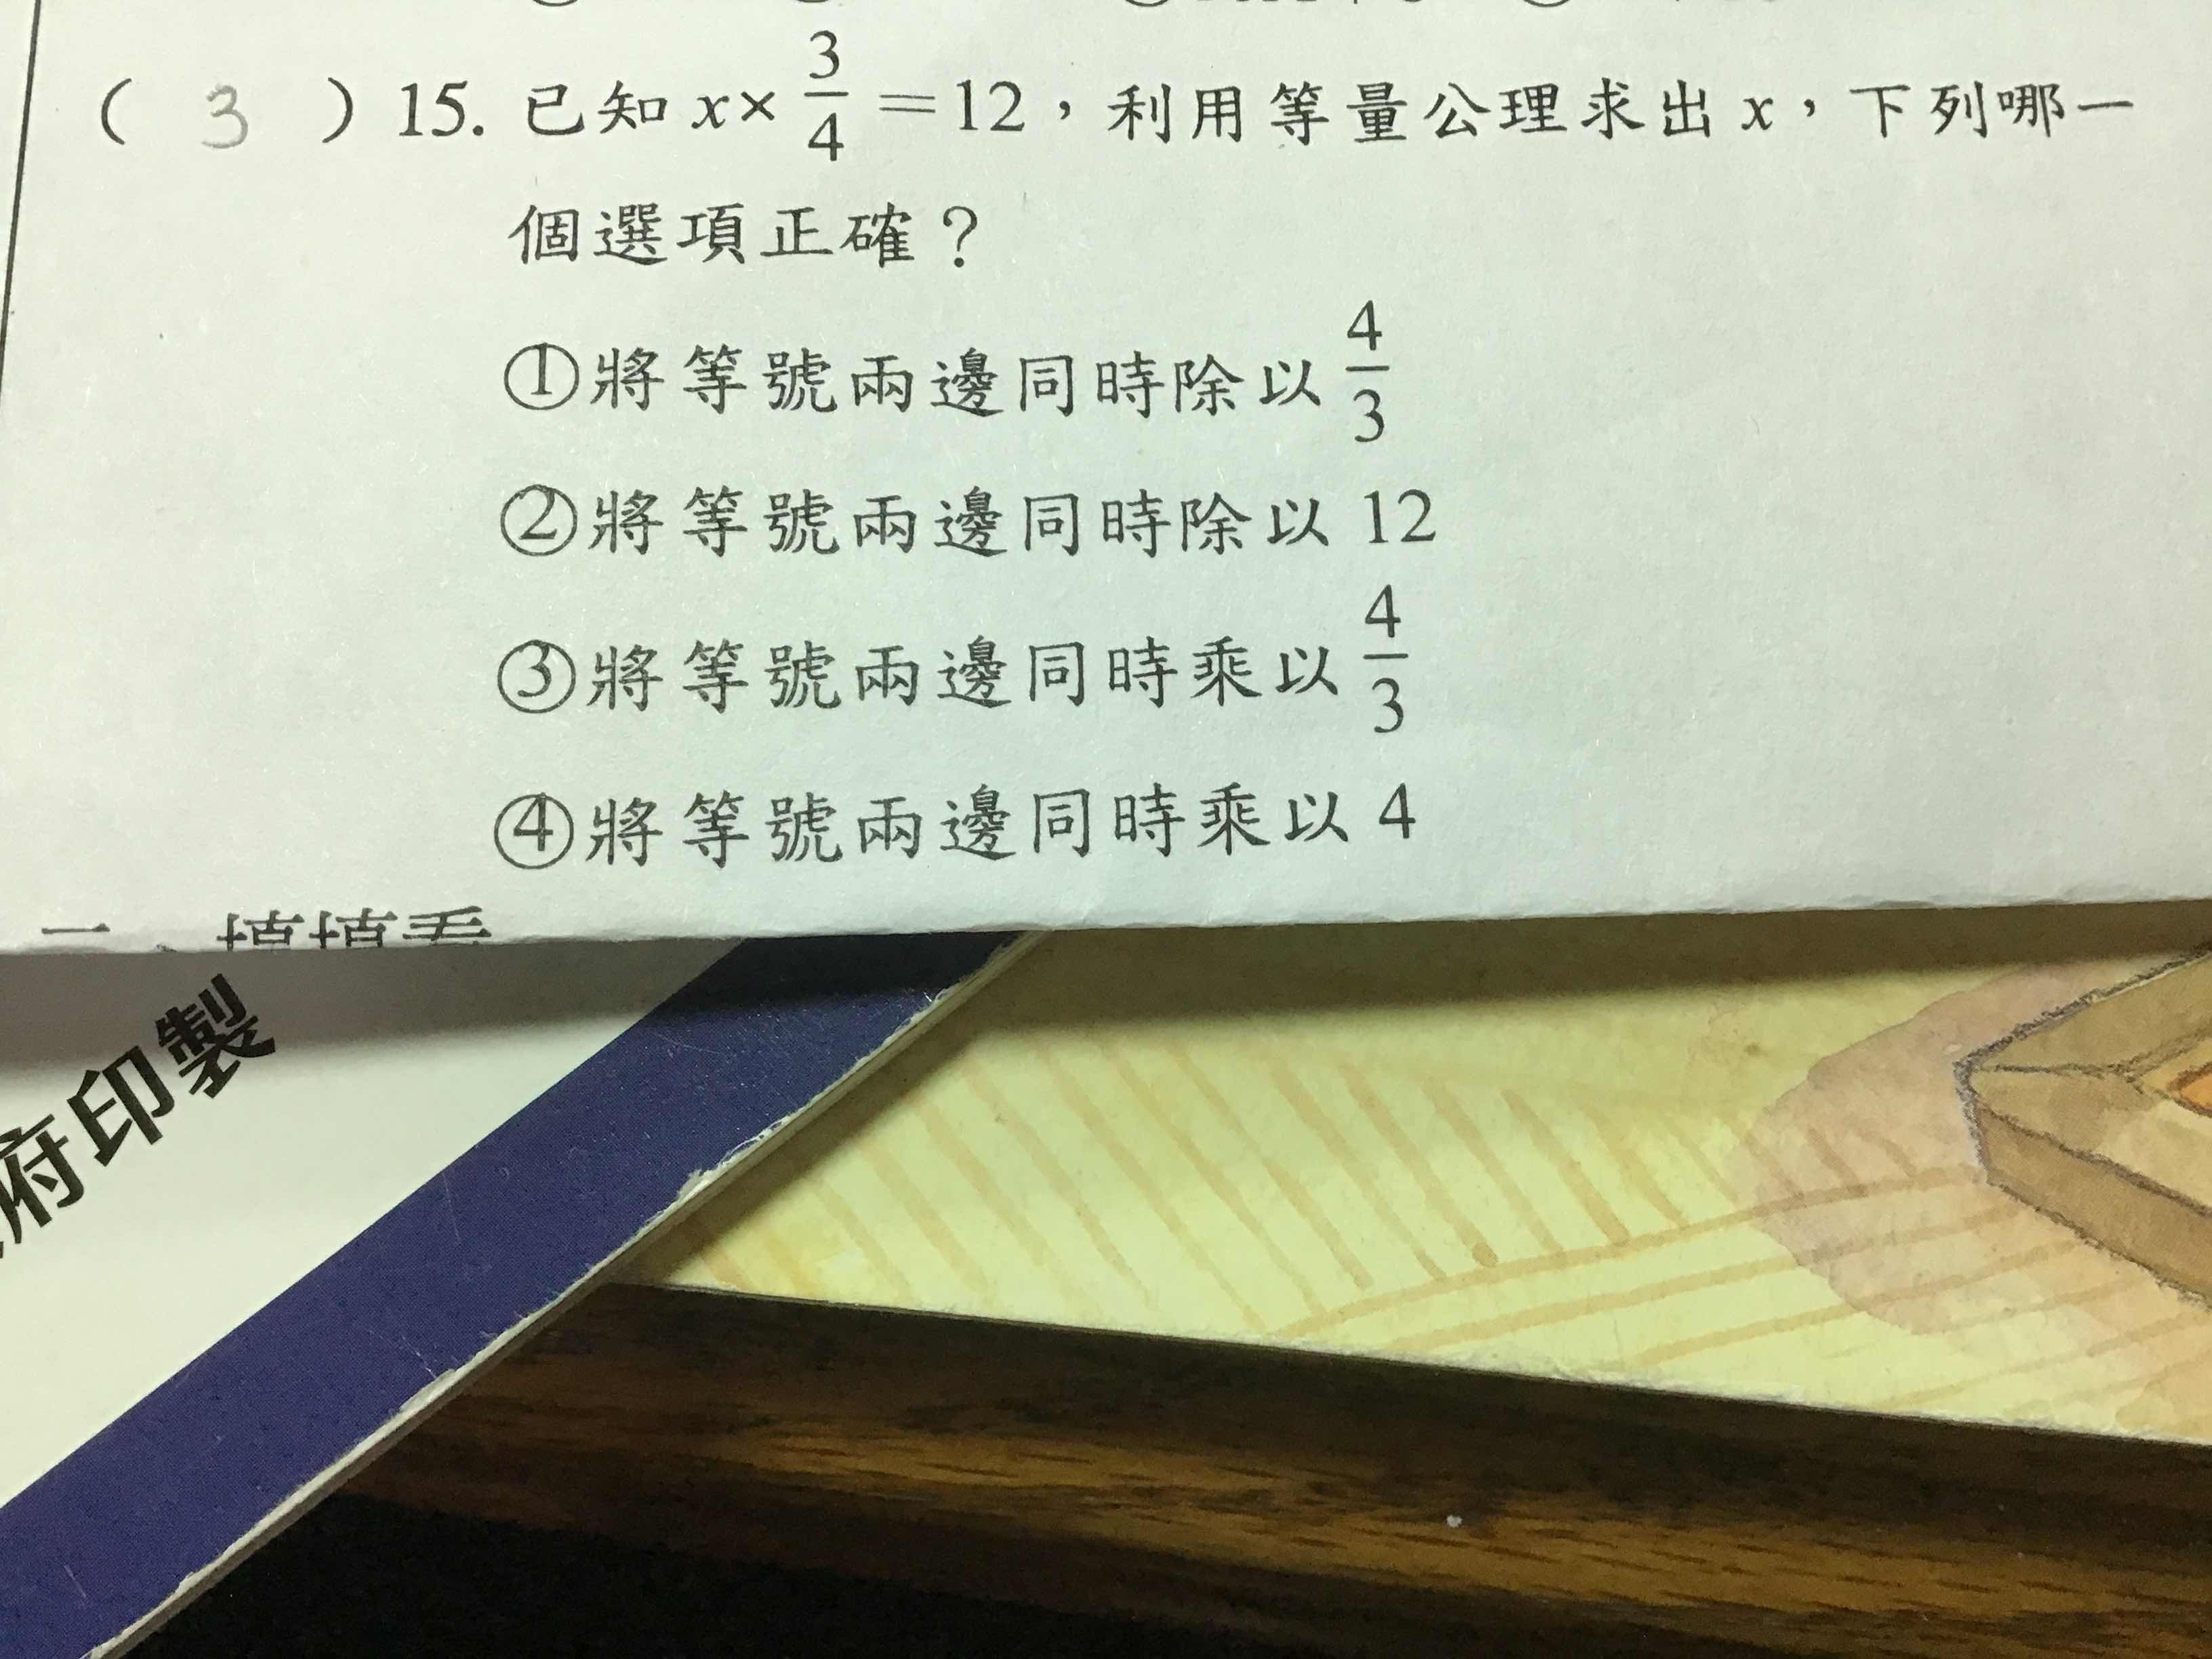 ( 3 ) 15. 已知 x× 3/4 =12，利用等量公理求出 x，下列哪一
個選項正確？
①將等號兩邊同時除以 4/3
②將等號兩邊同時除以 12
③將等號兩邊同時乘以 4/3
④將等號兩邊同時乘以 4
府印製